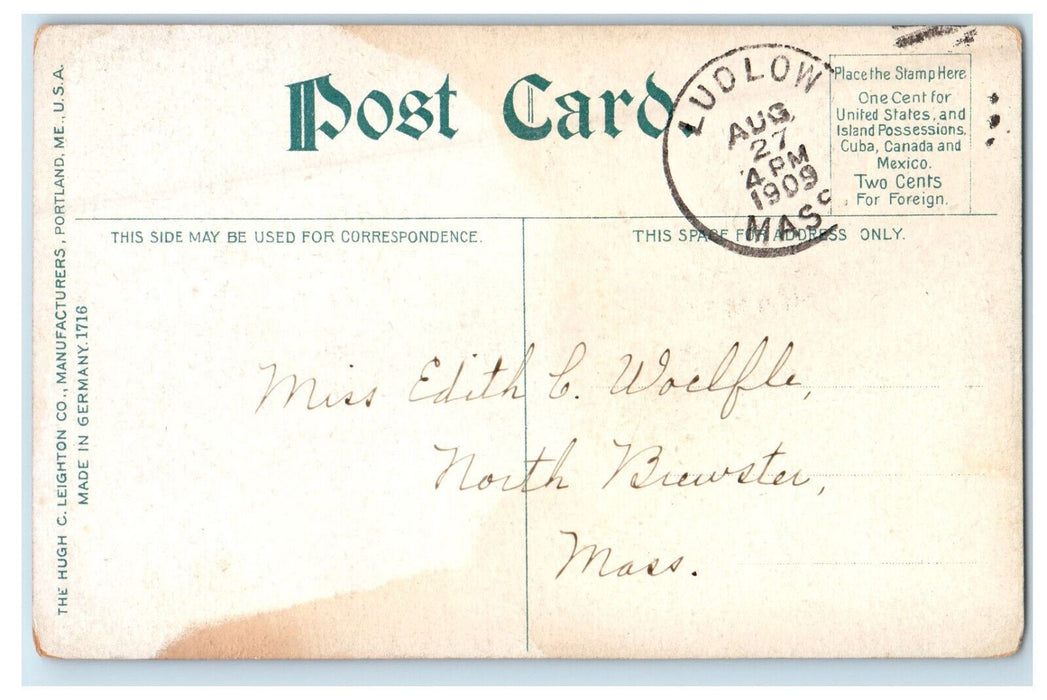 Post Card.
LUDLOW
AUG
27
4 PM
1909
MASS
Place the Stamp Here
One Cent for
United States, and
Island Possessions,
Cuba, Canada and
Mexico.
Two Cents
For Foreign.
THIS SIDE MAY BE USED FOR CORRESPONDENCE.
THIS SPACE FOR ADDRESS ONLY.
Miss Edith C. Woelfle,
North Brewster,
Mass.
THE HUGH C. LEIGHTON CO., MANUFACTURERS, PORTLAND, ME., U.S.A.
MADE IN GERMANY. 1716